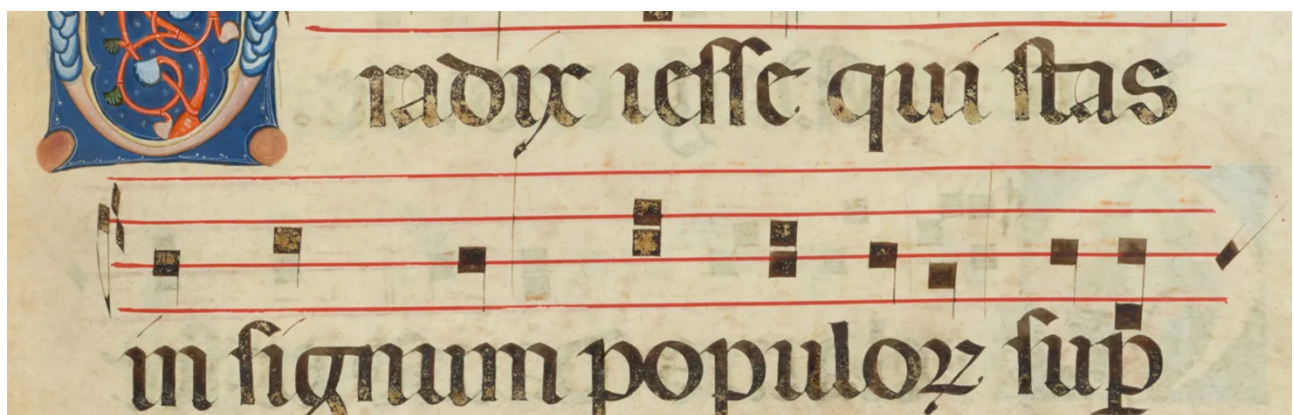 radix iesse qui stas
in signum populoꝝ sup